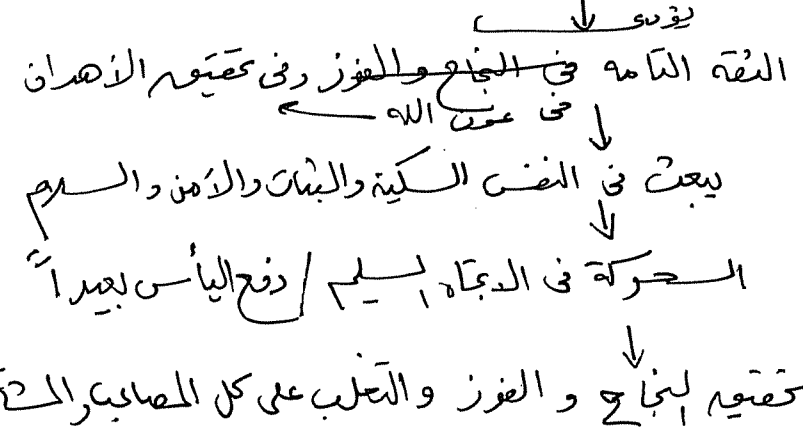 يؤدى
الثقة التامه فى النجاح والفوز وفى تحقيق الأهداف
فى عون الله
يبعث فى النفس السكينة والثبات والأمن والسلام
الحركة فى الاتجاه السليم / دفع اليأس بعيداً
تحقيق النجاح و الفوز والتغلب على كل المصاعب